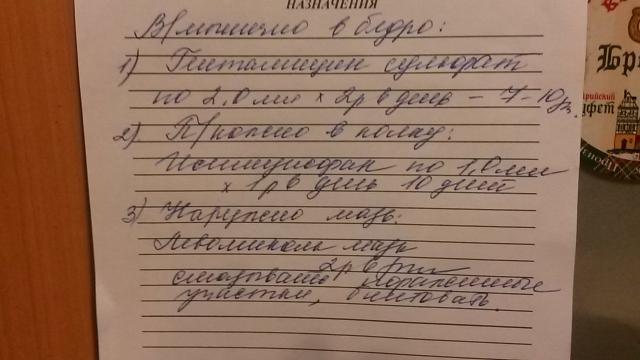 НАЗНАЧЕНИЯ
В/мышечно в бедро:
1) Гентамицин сульфат
по 2,0 мл х 2р в день – 7-10 дн.
2) П/кожно в холку:
по 1,0 мл
х 1р в день 10 дней
3) Наружно мазь:
Левомиколь мазь
2р в день
смазывать пораженные
участки, бинтовать.
Бр
фет